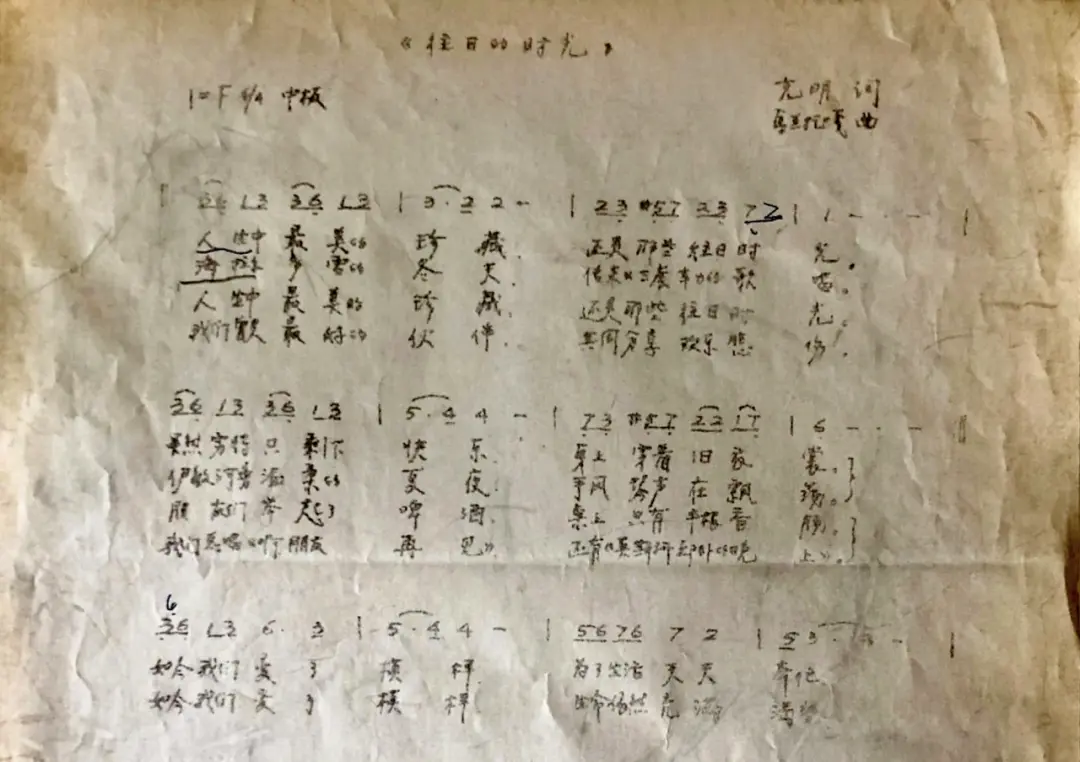 《往日的时光》
1=F 4/4 中板
克明 词
曲
| 36 13 36 13 | 3·2 2 - | 23 #57 33 72 | 1 - · - |
人生中 最 美的 珍 藏 还是 那些 往日 时 光。
海拉 多雪的 冬 天 传来《三套车》的歌 唱。
人生中 最 美的 珍 藏 还是 那些 往日 时 光。
我们 最 好的 伙 伴 共同 分享 欢乐 悲 伤。
36 13 36 13 | 5·4 4 - | 73 #57 22 17 | 6 - · - ‖
虽然 穷得 只 剩下 快 乐 身上 穿着 旧 衣 裳。
伊敏河 温 柔的 夏 夜 手风 琴声 在 飘 荡。
朋友们 举起了 啤 酒 桌上 只有 半根 香 肠。
我们 唱《啊 朋友 再 见》 还有《莫斯科 郊外的晚 上》。
6
36 13 6· 3 | 5·4 4 - | 56 76 7 2 | 53· 3 - |
如今 我们 变 了 模 样 为了 生活 天 天 奔忙
如今 我们 变 了 模 样 生命 依然 充 满 渴望